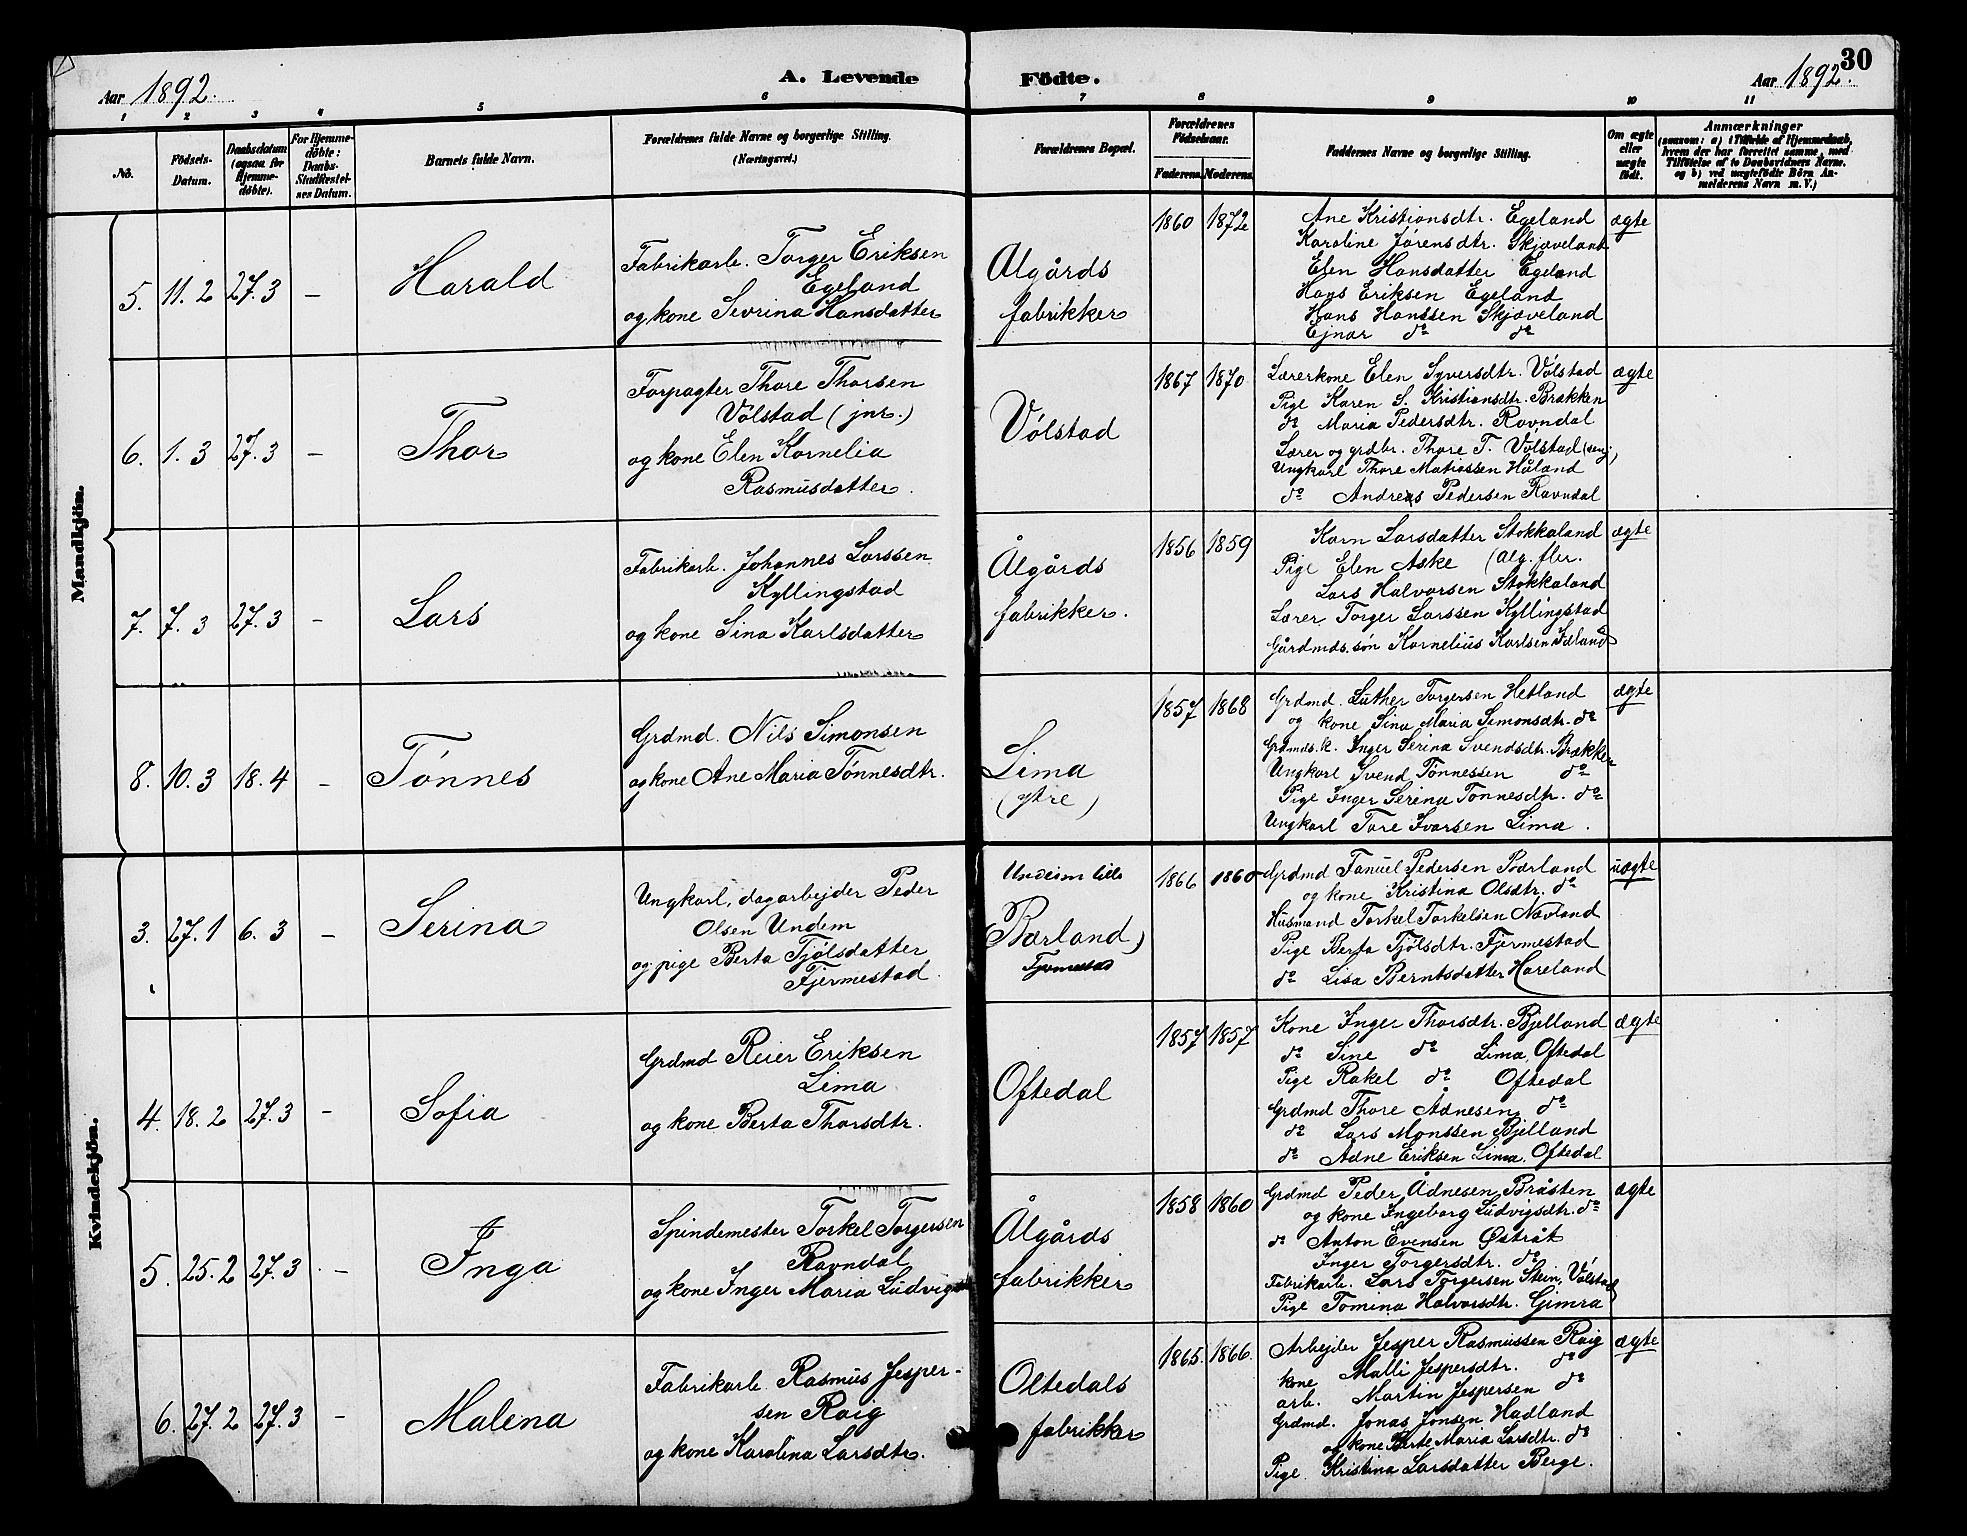 30
Aar 1892.
A. Levende Födte.
Aar 1892.
1 2 3 4 5 6 7 8 9 10 11
No.
Födsels-Datum.
Daabsdatum (ogsaa for Hjemme-døbte).
For Hjemme-døbte: Daabs-Stadfæstel-ses Datum.
Barnets fulde Navn.
Forældrenes fulde Navne og borgerlige Stilling.
(Næringsvei.)
Forældrenes Bopæl.
Forældrenes Födselsaar.
Faderens. Moderens.
Faddernes Navne og borgerlige Stilling.
Om ægte eller uægte födt.
Anmærkninger
(saasom: a) i Tilfælde af Hjemmedaab, hvem der har forrettet samme, med Tilföielse af to Daabsvidners Navne, og b) ved uægtefödte Börn An-melderens Navn m. V.)
Mandkjön.
5. 11.2 27.3 –
Harald
Fabrikarb. Torger Eriksen
Egeland
og kone Sevrina Hansdatter
Ålgårds
fabrikker
1860 1872
Ane Kristiansdtr. Egeland
Karoline Jørensdtr. Skjæveland
Elen Hansdatter Egeland
Hans Eriksen Egeland
Hans Hanssen Skjæveland
Ejnar do do
ægte
6. 1.3 27.3 –
Thor
Forpagter Thore Thorsen
Vølstad (jnr.)
og kone Elen Kornelia
Rasmusdatter.
Vølstad
1867 1870
Lærerkone Elen Syversdtr. Vølstad
Pige Karen S. Kristiansdtr. Brækken
do Maria Pedersdtr. Ravndal
Lærer og grdbr. Thore T. Vølstad (sen.),
Ungkarl Thore Matiassen Håland
do Andreas Pedersen Ravndal
ægte
7. 7.3 27.3 –
Lars
Fabrikarb. Johannes Larssen
Kyllingstad
og kone Sina Karlsdatter
Ålgårds
fabrikker.
1856 1859
Karn Larsdatter Stokkaland
Pige Elen Aske (Alg. fbr.
Lars Halvorsen Stokkaland
Lærer Torger Larssen Kyllingstad
Gårdmds. søn Kornelius Karlsen
ægte
8. 10.3 18.4 –
Tønnes
Grdmd. Nils Simonsen
og kone Ane Maria Tønnesdtr.
Lima
(ytre)
1857 1868
Grdmd. Luther Torgersen Hetland
og kone Sina Maria Simonsdtr. do
Grdmds. k. Inger Serina Svendsdtr. Brækken
Ungkarl Svend Tønnessen do
Pige Inger Serina Tønnesdtr. do
Ungkarl Tore Ivarsen Lima.
ægte
Kvindekjön.
3. 27.1 6.3 –
Serina
Ungkarl, dagarbejder Peder
Olsen Undem
og pige Berta Tjølsdatter
Fjermestad.
Undeim lille
(Bærland)
Fjermestad
1866 1860
Grdmd Tanuel Pedersen Bærland
og kone Kristina Olsdtr. do
Husmand Torkel Torkelsen Nævland
Pige Berta Tjølsdtr. Fjermestad
do Lisa Berntsdatter Hareland
uægte
4. 18.2 27.3 –
Sofia
Grdmd Reier Eriksen
Lima
og kone Berta Thorsdtr.
Oftedal
1857 1857
Kone Inger Thorsdtr. Bjelland
do Sine do Lima, Oftedal
Pige Rakel do Oftedal
Grdmd Thore Ådnesen do
do Lars Monssen Bjelland
do Adne Eriksen Lima, Oftedal
ægte
5. 25.2 27.3 –
Inga
Spindemester Torkel Torgersen
Ravndal
og kone Inger Maria
Ålgårds
fabrikker
1858 1860
Grdmd Peder Ådnesen Bråsten
og kone Ingeborg Ludvigsdtr. do
do Anton Evensen Østråt
Inger Torgersdtr. do
Fabrikarb. Lars Torgersen Stein, Vølstad
Pige Tomina Halvorsdtr. Gimra
ægte
6. 27.2 27.3 –
Malena
Fabrikarb. Rasmus Jesper-
sen Raig
og kone Karolina Larsdtr.
Oltedals
fabrikker
1865. 1866.
Arbejder Jesper Rasmussen Raig
kone Malli Jespersdtr. do
arb. Martin Jespersen do
Grdmd. Jonas Jonsen Hadland
og kone Berte Maria Larsdtr. do
Pige Kristina Larsdatter Berge.
ægte